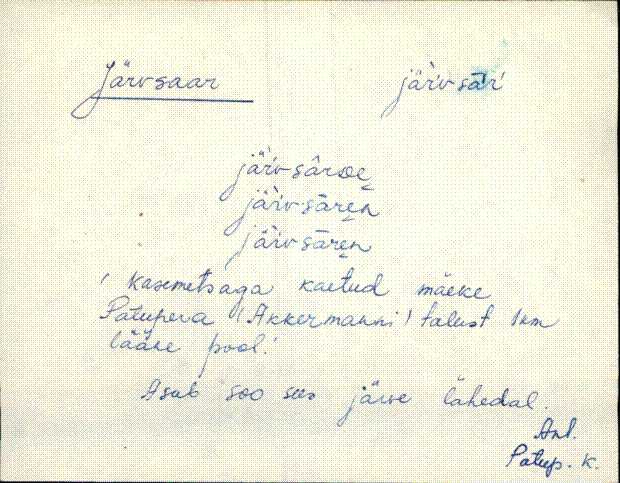 Järvsaar järv sār
järv-sāroe
järv-sāren
järv-sāren
! Kasemetsaga kaetud mäeke
Patupera (Akkermanni) talust 1 km
lääne pool!
Asub soo sees järve lähedal.
Ant.
Patup. k.